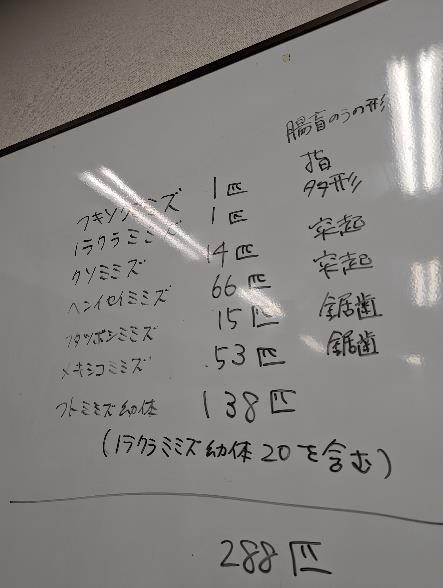 腸盲のうの形
フキソクミミズ 1匹 指
イラクラミミズ 1匹 多形
クソミミズ 14匹 突起
ヘンイセイミミズ 66匹 突起
フタツボシミミズ 15匹 鋸歯
メキシコミミズ 53匹 鋸歯
フトミミズ幼体 138匹
(イラクラミミズ幼体20を含む)
288匹